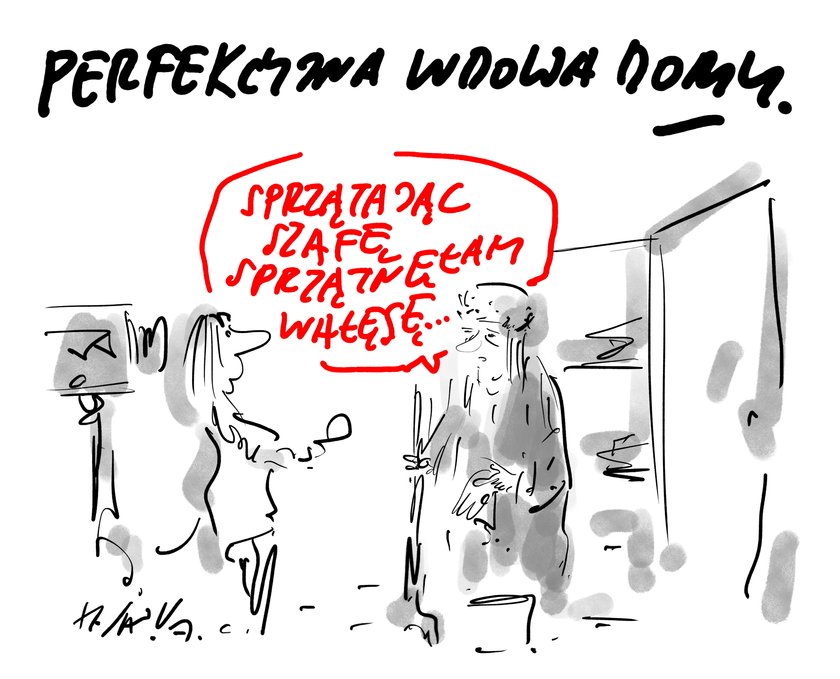 PERFEKCYJNA WDOWA DOMU.
SPRZĄTAJĄC
SZAFĘ
SPRZĄTNĘŁAM
WAŁĘSĘ...